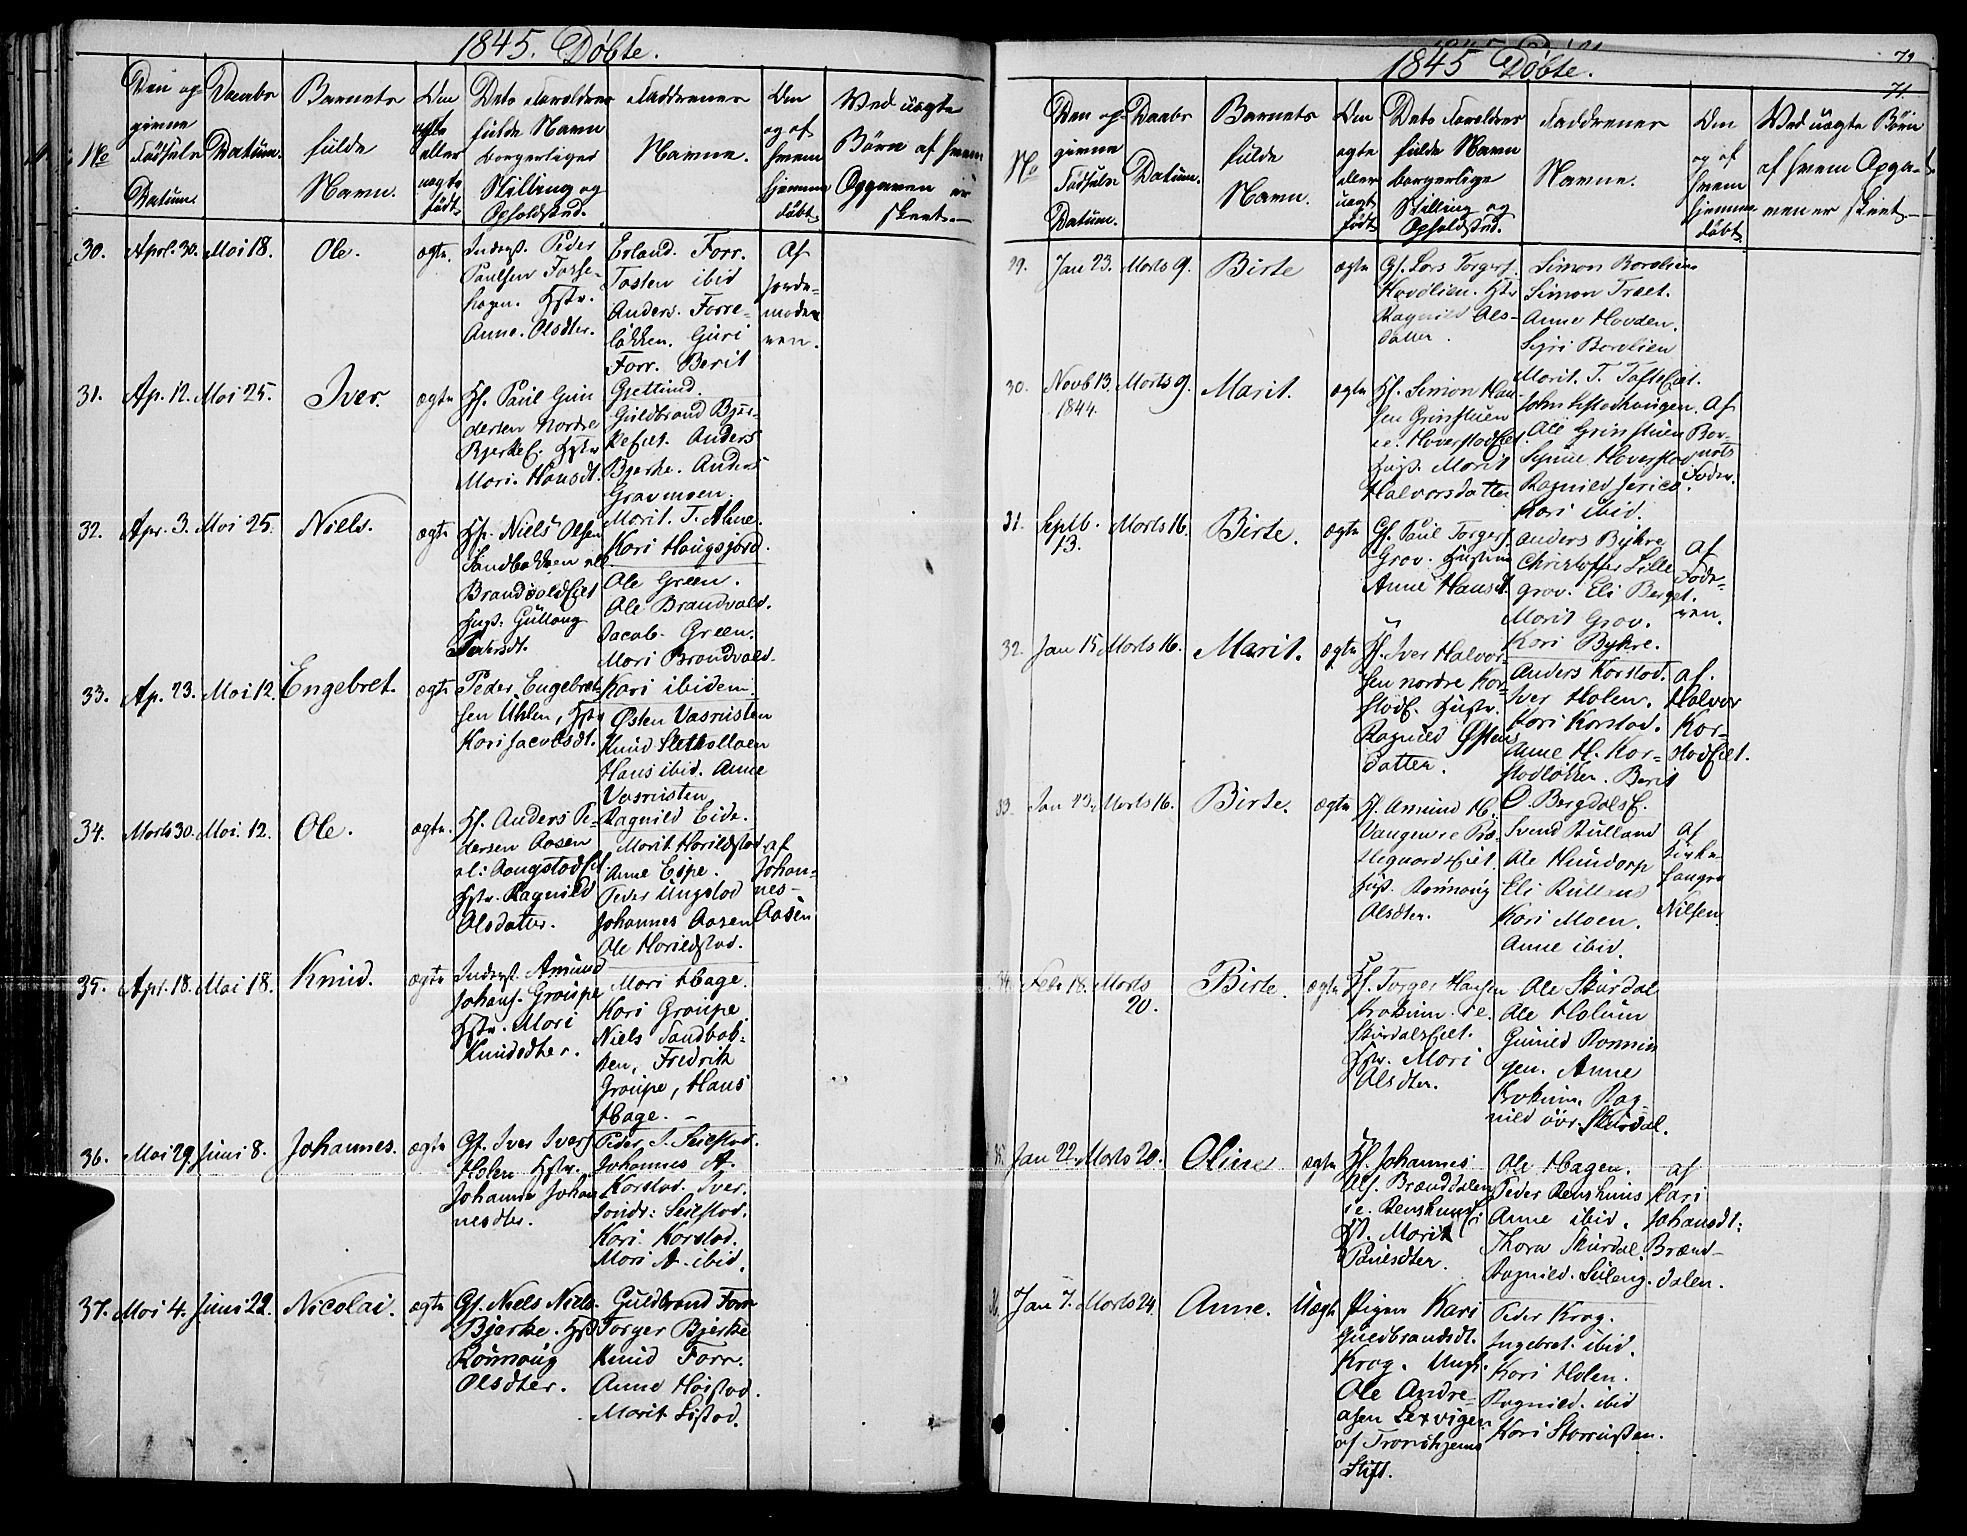 1845. Döbte.
No
Den op-
givne
Födsels
Datum.
Daabs
Datum.
Barnets
fulde
Navn.
Om
ægte
eller
uægte
födt.
Dets Forældres
fulde Navn
borgerliges
Stilling og
Opholdsted.
Faddrenes
Navne.
Om
og af
hvem
hjemme
döbt.
Ved uægte
Börn af hvem
Opgaven er
skeet.
30. Aprl. 30. Mai 18. Ole. ægte.
Inderst. Peder
Paulsen Forse-
hagen. Hstr.
Anne. Olsdter.
Erland. Forr.
Tosten ibid
Anders. Forre-
lökken. Guri
Forr. Berit
Gjetlund.
Af
Jorde-
moder
nen.
31. Ap. 12. Mai 25. Iver. ægte
Hf. Paul Gun
dersen Nordre
Bjerke E. Hstr
Mari. Hansdt.
Guldbrand Bjer-
ke Eiet. Anders
Bjerke. Anders
Gravmoen.
Marit. T. Alme.
Kari Haugsjord.
32. Apr. 3. Mai 25. Niels. ægte
Hf. Niels Olsen
Sandbakken
Brandvold Eiet
Hus: Gullaug
Pedersdt.
Ole Green.
Ole Brandvold.
Jacob. Green.
Mari Brandvold.
Kari ibidem.
33. Ap. 23. Mai 12 Engebret. ægte
Peder Engebret
sen Uhlen, Hstr
Kari Jacobsdt.
Østen Vasrusten
Knud Sletholloen
Hans ibid. Anne
Vasrusten
Ragnild Eide.
34. Marts 30. Mai. 12. Ole. ægte.
Hf. Anders Pe-
dersen Aasen
Hstr. Ragnild
Olsdatter.
Marit Harildstad
Anne Espe.
Peder Ungstad
Johannes Aasen
Ole Harildstad.
af
Johan-
nes
Aasen
35. Apr. 18. Mai 18. Knud. ægte
Inderst. Amund
Johans. Graupe
Hstr. Mari
Knudsdter.
Mari Hage.
Kari Graupe
Niels Sandbak-
ken, Fredrik
Graupe, Hans
Hage.
36. Mai 29. Juni 8. Johannes. ægte
Gf. Iver Ivers
Holen Hstr.
Johanne Johan
nesdter.
Peder. I. Seiestad.
Johannes A.
Korstad. Iver.
söndr: Seiestad.
Kari. Korstad.
Mari A. ibid.
37. Mai 4. Juni 22. Nicolai. ægte
Gf. Niels Niels.
Bjerke. Hst
Rönnaug
Olsdter.
Guldbrand Forr
Torger Bjerke
Knud Forr.
Anne Höistad.
Marit Listad.
1845 Döbte.
79
71.
No
Den op-
givne
Födsels
Datum.
Daabs
Datum.
Barnets
fulde
Navn.
Om
ægte
eller
uægt
födt.
Dets Forældres
fulde Navn
borgerlige
Stilling og
Opholdsted.
Faddrenes
Navne.
Om
og af
hvem
hjemme
döbt.
Ved uægte Börn
af hvem Opga-
ven er skeet.
29. Jan 23. Marts 9. Birte ægte
Gf. Lars Torgers.
Hovdlien. Hstr
Ragnild Ols-
datter.
Simon Bordlien
Simon Træet.
Anne Hovden.
Sigri Bordlien
Marit. T. Tofte Eiet.
30. Novb 13. 1844. Marts 9. Marit. ægte
Hf. Simon Han
sen Grinstuen
ie. Hoverstad Eiet
Hust. Marit
Halvorsdatter
Ole Grinstuen
Ragnild Jerico.
Kari ibid.
Af
Bar-
nets
Fader.
31. Septb. 13. Marts 16. Birte. ægte
Gf. Paul Torgers.
Grov. Hustrue
Anne Hansdt.
Anders Byhre
Christoffer Lille
grov. Eli Berget.
Marit Grov.
Kari Byhre.
af
Jorde-
ren.
32. Jan 15 Marts 16. Marit. ægte
Hf. Iver Halvor-
sen nordre Kor-
stad E. Hustr.
Ragnild Østens
datter.
Anders Korstad.
Iver Holen.
Kari Korstad.
Anne H. Kor-
stadlökken. Berit
O. Bergdals E.
af.
Halvor
Kor-
stad Eiet.
33. Jan 23. Marts 16. Birte. ægte
Hf. Amund H.
Vangen ie Præ-
stegaards Eiet.
Hust. Rönnaug
Olsdter.
Svend Rulland
Ole Hundorp
Eli Rulland
Kari Moen.
Anne ibid.
af
Kirke-
sanger
Nilsen
34. Feb. 18. Marts 20. Birte. ægte
Hf. Torger Hansen
Brokum. ie.
Skurdals Eiet.
Hstr. Mari
Olsdter.
Ole Skurdal
Ole Holum
Gunild Ronnin
gen. Anne
Brokum. Rag-
nild övr. Skurdal.
35. Jan 22. Marts 20. Oline ægte
Hf. Johannes
Ols. Brænddalen
ie. Renshuus Ei
Hst. Marit
Paulsdter.
Ole Hagen.
Peder Renshuus
Anne ibid.
Thora Skurdal.
Ragnild. Suleng.
af
Kari
Johansdt:
Brænd-
dalen.
36. Jan 7. Marts 24. Anne. Uægte
Pigen Kari
Guldbrandsdt.
Krog. Ungk.
Ole Andre-
asen Lexvigen
af Trondhjems
Stift.
Peder Krog.
Ingebret. ibid.
Kari Holen.
Ragnild. ibid
Kari Storrusten.